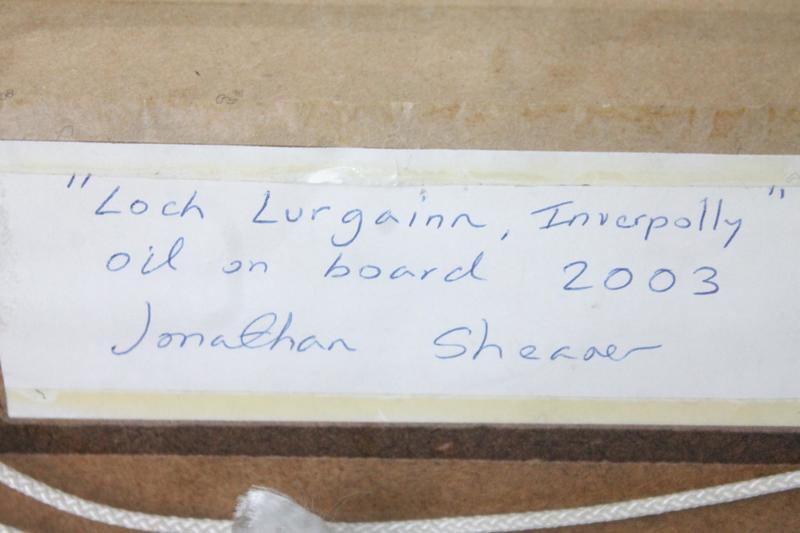 "Loch Lurgainn, Inverpolly"
oil on board 2003
Jonathan Shearer